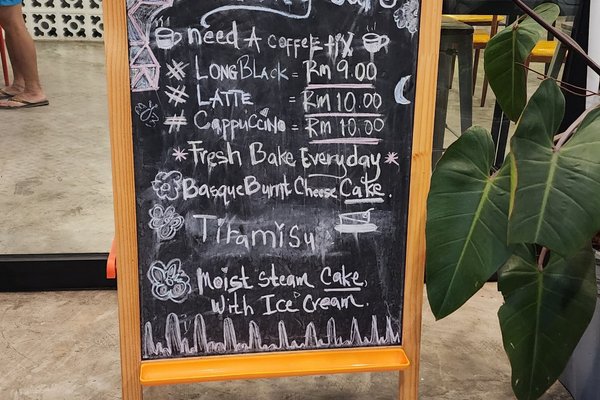 need A coffee fix
# Long Black = Rm 9.00
# Latte = Rm 10.00
# Cappuccino = Rm 10.00
* Fresh Bake Everyday *
Basque Burnt Cheese Cake.
Tiramisu
Moist steam Cake,
With Ice Cream.